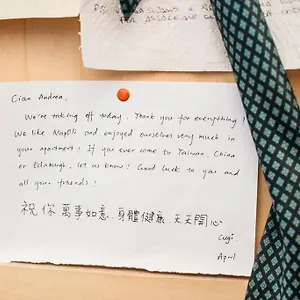 Ciao Andrea,
We're taking off today. Thank you for everything!
We like Napoli and enjoyed ourselves very much in
your apartment! If you ever come to Taiwan, China
or Edinburgh, let us know! Good luck to you and
all your friends!
祝你萬事如意、身體健康、天天開心
April